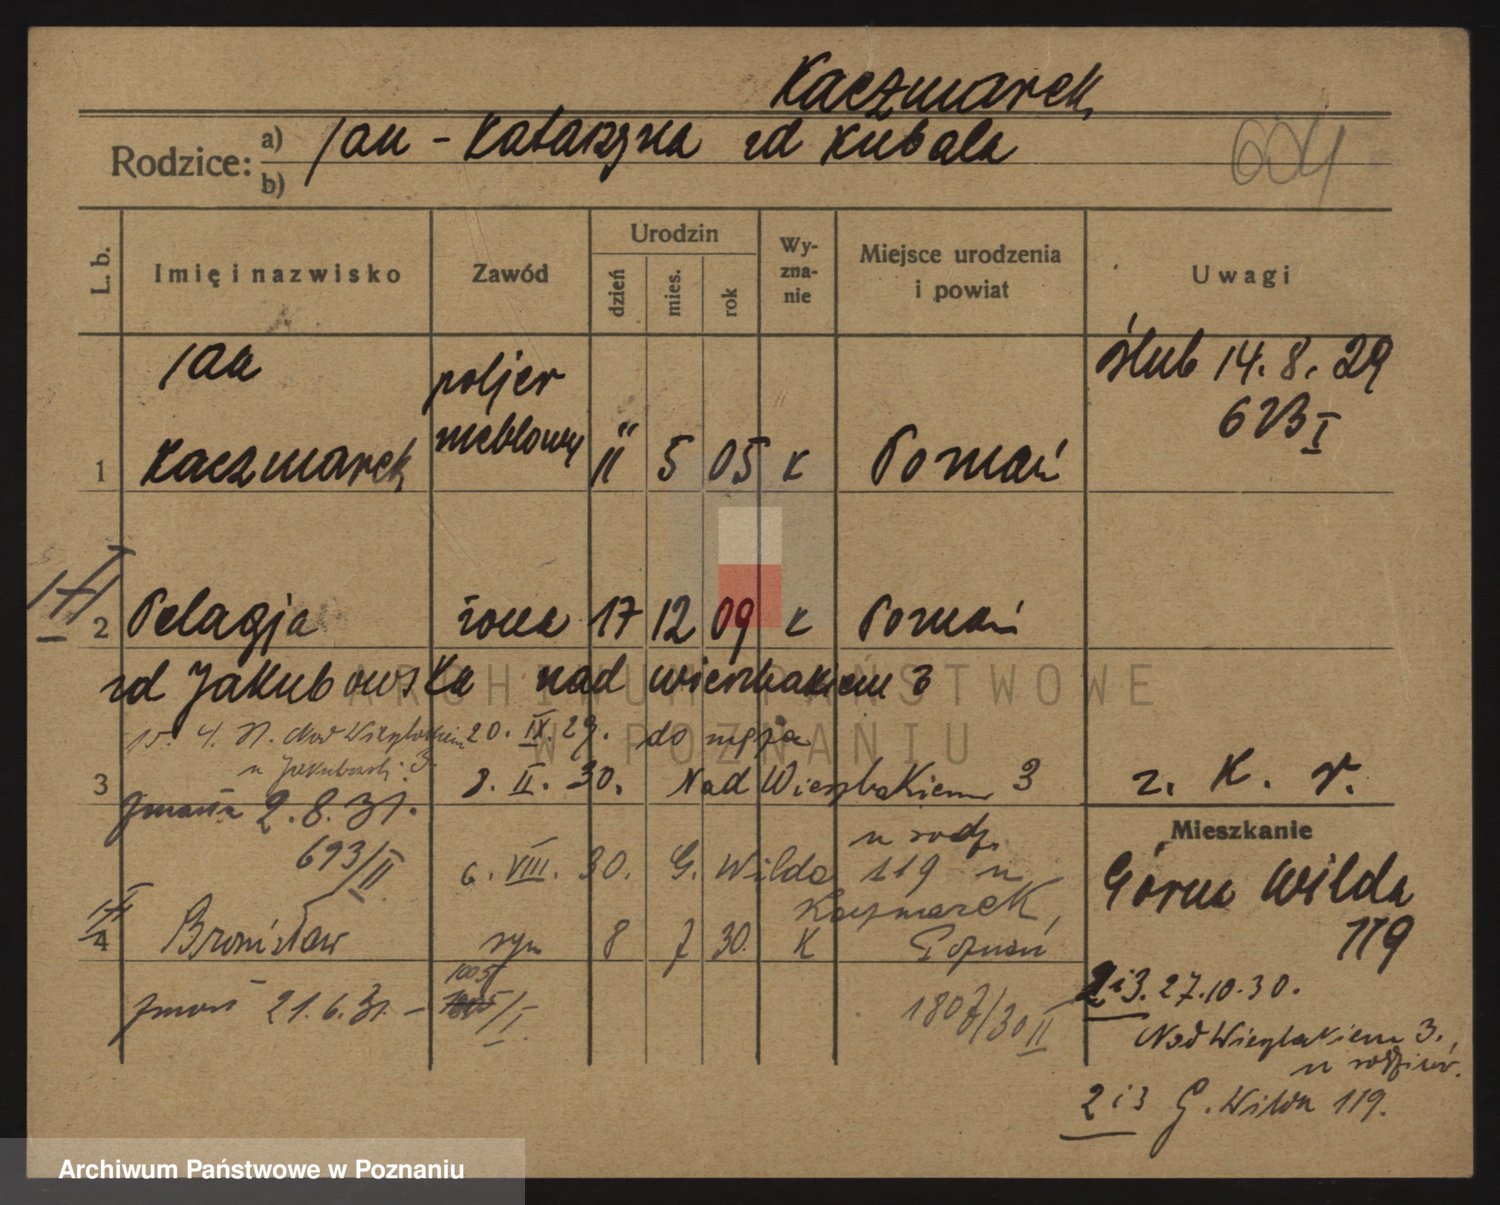 Kaczmarek
Rodzice: a) b) Jan - Katarzyna zd Kubala
604
L. b. Imię i nazwisko Zawód Urodzin dzień mies. rok Wy-zna-nie Miejsce urodzenia i powiat Uwagi
1 Jan Kaczmarek poljer meblowy 11 5 05 K Poznań
ślub 14. 8. 29
623 I
2 Pelagja żona 17 12 09 K Poznań
zd Jakubowska nad wierzbakiem 3
15. 4. 31. Nad Wierzbakiem 3
u Jakubowsk.
20. IX. 29. do męża
3 8. II. 30. Nad Wierzbakiem 3
z. K. r.
zmarła 2. 8. 31.
693/II
u rodz.
6. VIII. 30. G. Wilda 119 u
Kaczmarek,
4 Bronisław syn 8 7 30. K Poznań
zmarł 21. 6. 31. - 1005/I
1807/30 II
Mieszkanie
Górna Wilda
119
2 i 3. 27. 10. 30.
Nad Wierzbakiem 3.,
u rodziców.
2 i 3 G. Wilda 119.
ARCHIWUM PAŃSTWOWE
W POZNANIU
Archiwum Państwowe w Poznaniu